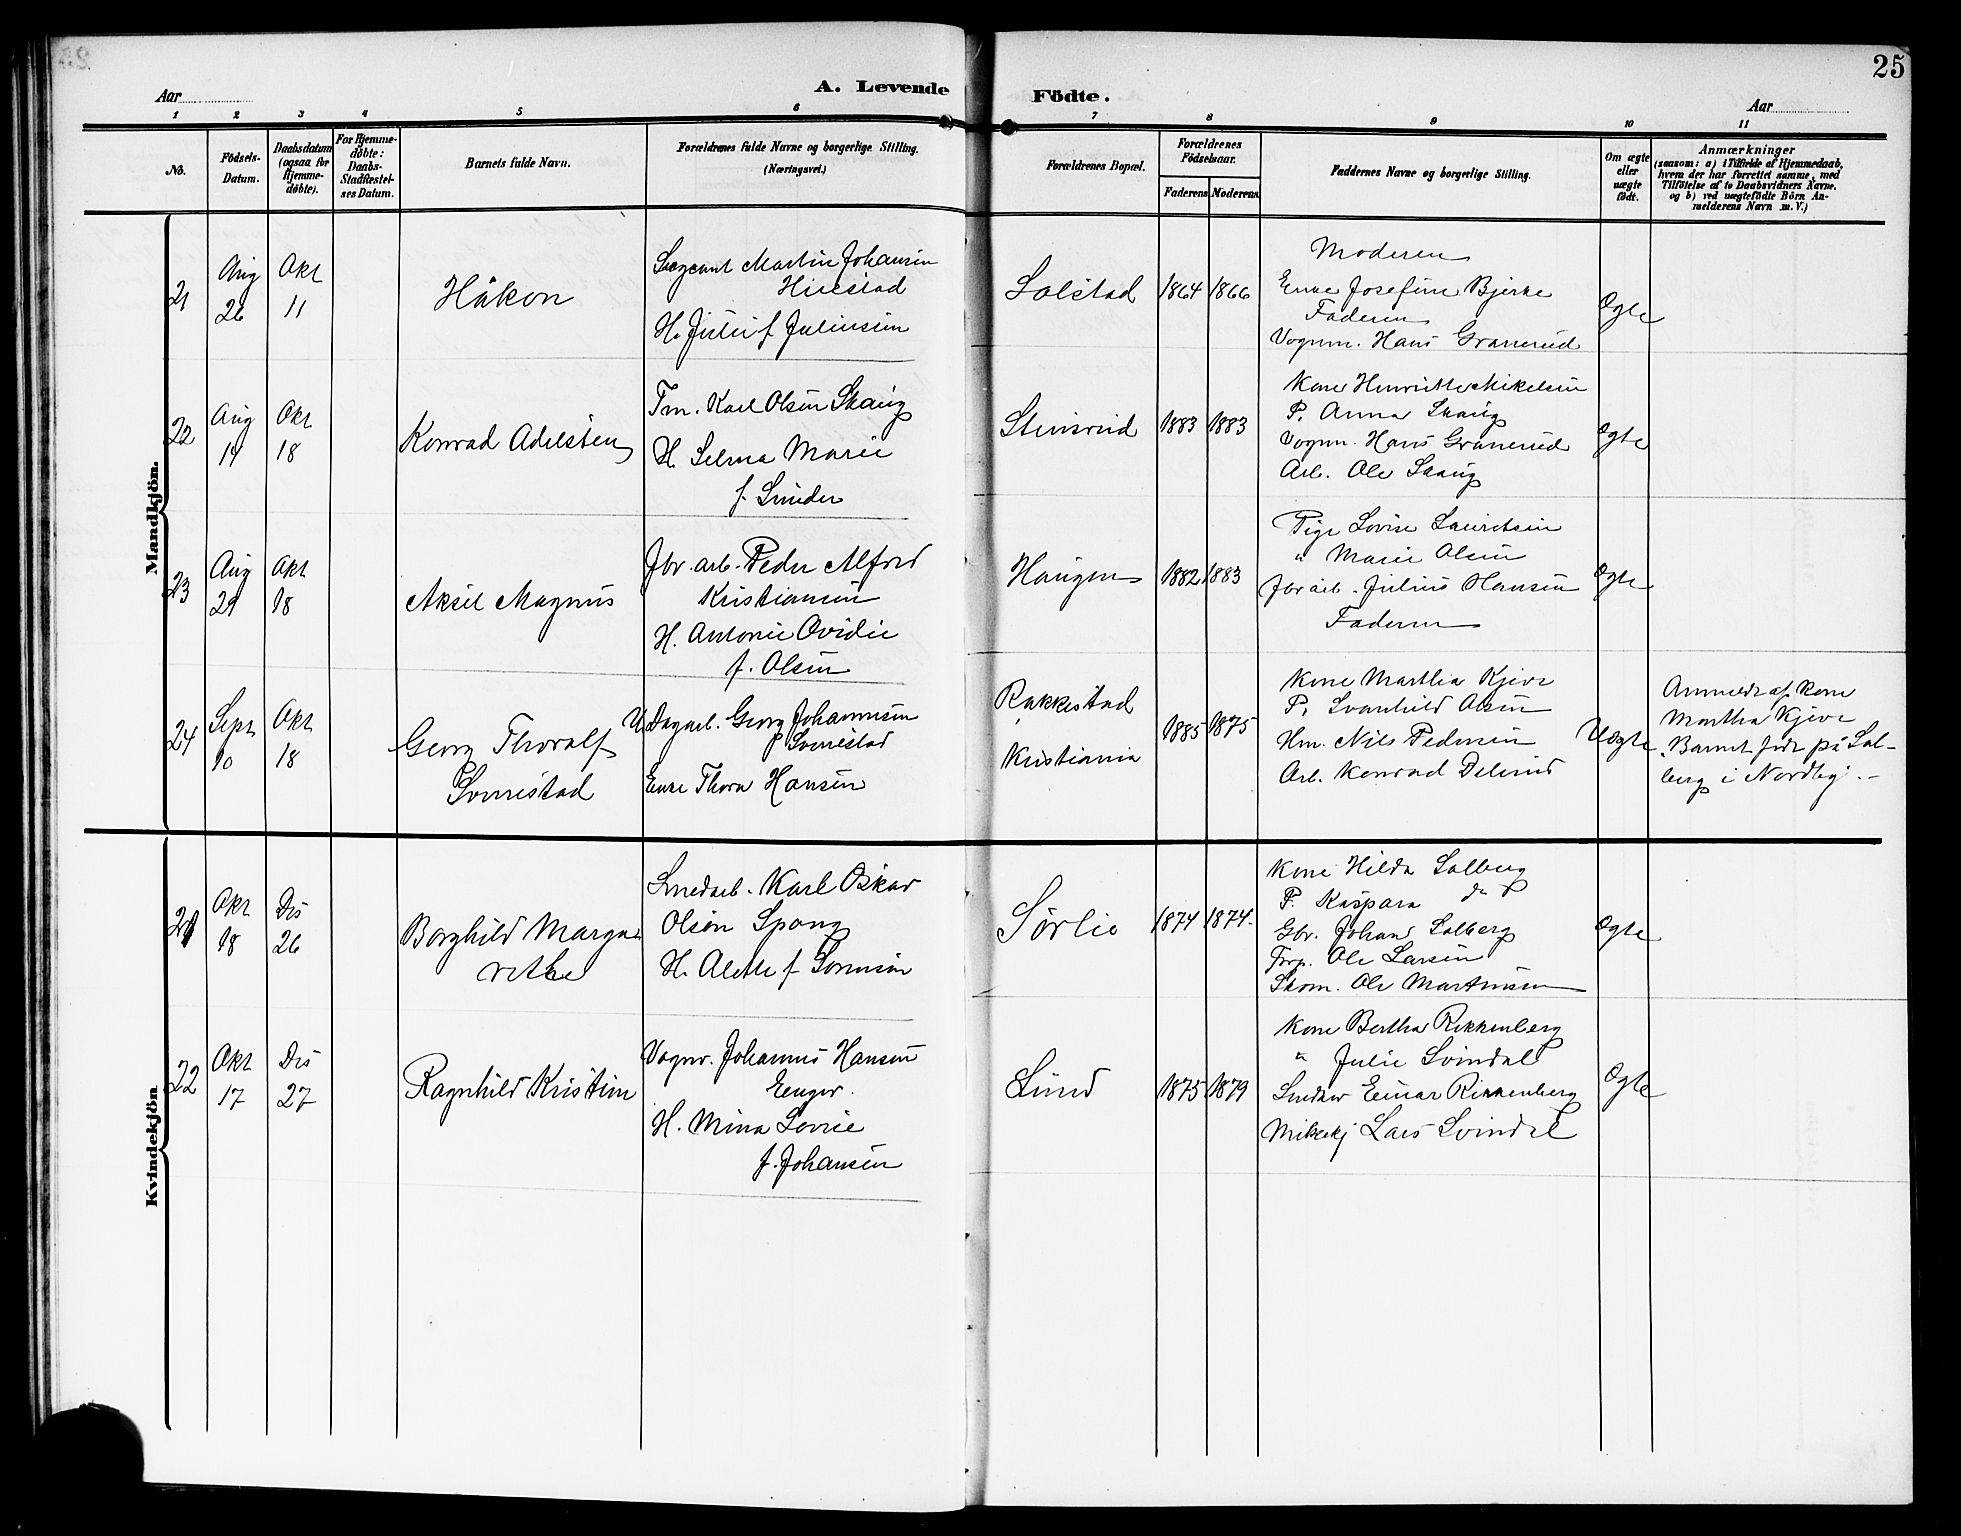 25
A. Levende Födte.
Aar
Aar
1 2 3 4 5 6 7 8 9 10 11
No.
Födsels-
Datum.
Daabsdatum
(ogsaa for
Hjemme-
döbte).
For Hjemme-
döbte:
Daabs-
Stadfæstel-
ses Datum.
Barnets fulde Navn.
Forældrenes fulde Navne og borgerlige Stilling.
(Næringsvei.)
Forældrenes Bopæl.
Forældrenes
Födselsaar.
Faderens Moderens
Faddernes Navne og borgerlige Stilling.
Om ægte
eller
uægte
födt.
Anmærkninger
(saasom: a) i Tilfælde af Hjemmedaab,
hvem der har forrettet samme, med
Tilföielse af to Daabsvidners Navne.
og b) ved uægtefödte Börn An-
melderens Navn m. V.)
Mandkjön.
21
Aug
26
Okt
11
Håkon
Sergeant Martin Johansen
H. Julie f Juliussen
Solstad
1864 1866
Moderen
Enke Josefine Bjerke
Faderen
Vognm. Hans Granerud
Ægte
22
Aug
14
Okt
18
Konrad Adelsten
Tm. Karl Olsen Skaug
H. Selma Marie
f. Smeder
Stensrud
1883 1883
Kone Henriette Mikelsen
P. Anna Skaug
Vognm. Hans Granerud
Arb. Ole Skaug
Ægte
23
Aug
29
Okt
18
Aksel Magnus
Jbr. arb. Peder Alfred
Kristiansen
H. Antonie Ovidie
f. Olsen
Haugen
1882 1883
Pige Lovise Lauritsen
" Marie Olsen
Jbr arb. Julius Hansen
Faderen
Ægte
24
Sept
10
Okt
18
Georg Thoralf
Sverrestad
U. Dagarb. Georg Johannesen
Sverrestad
Enke Thora Hansen
Rakkestad
Kristiania
1885 1875
Kone Martha Kjeve
P. Svanhild Olsen
Hm. Nils Pedersen
Arb. Konrad
Uægte
Anmeldt af Kone
Martha Kjeve
Barnet født på Sol-
berg i Nordby. -
Kvindekjön
21
Okt
18
Des
26
Borghild Marga
rethe
Smedarb. Karl Oskar
Olsen Spong
H. Alette f Sørensen
Sørlie
1874 1874.
Kone Hilda Solberg
P. Kaspara do
Gbr. Johan Solberg
Torp. Ole Larsen
Skom. Ole Martinsen
Ægte
22
Okt
17
Des
27
Ragnhild Kristine
Vognv. Johannes Hansen
Eenger.
H. Mina Lovise
f. Johansen
Lund
1875 1879
Kone Bertha Rekkenberg
" Julie Svindal
Einar Rikkenberg
Melkekj Lars Svindal
Ægte